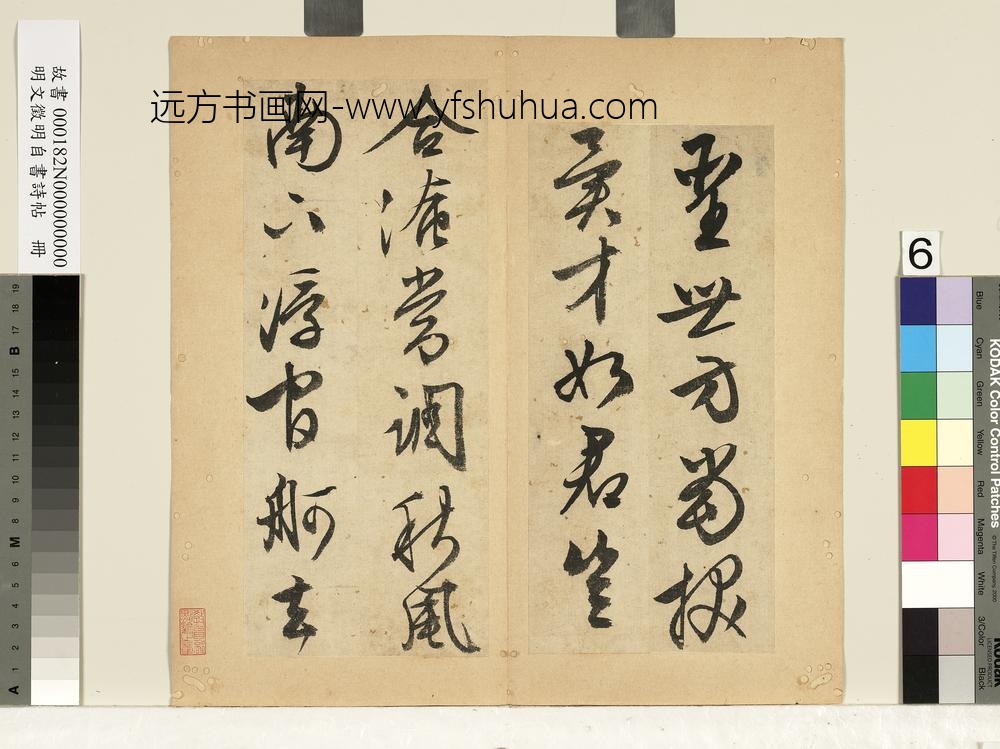 远方书画网-www.yfshuhua.com
故書 000182N000000000
明文徵明自書詩帖 冊
聖世方當拔
異才如君豈
合淹常調秋風
南下浮官舸去
6
KODAK Color Control Patches
© The Tiffen Company, 2000
Blue
Cyan
Green
Yellow
Red
Magenta
White
3/Color
Black
Kodak
LICENSED PRODUCT
A 1 2 3 4 5 6 M 8 9 10 11 12 13 14 15 B 17 18 19